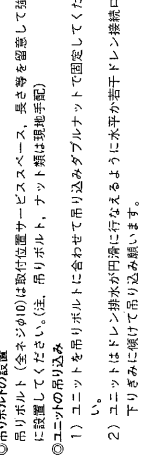 ◎吊りボルトの設置
吊りボルト（全ネジφ10）は取付位置サービススペース、長さ等を留意して強
に設置してください。（注．吊りボルト，ナット類は現地手配）
◎ユニットの吊り込み
1）ユニットを吊りボルトに合わせて吊り込みダブルナットで固定してくだ
い。
2）ユニットはドレン排水が円滑に行なえるように水平か若干ドレン接続口
下りぎみに傾けて吊り込み願います。